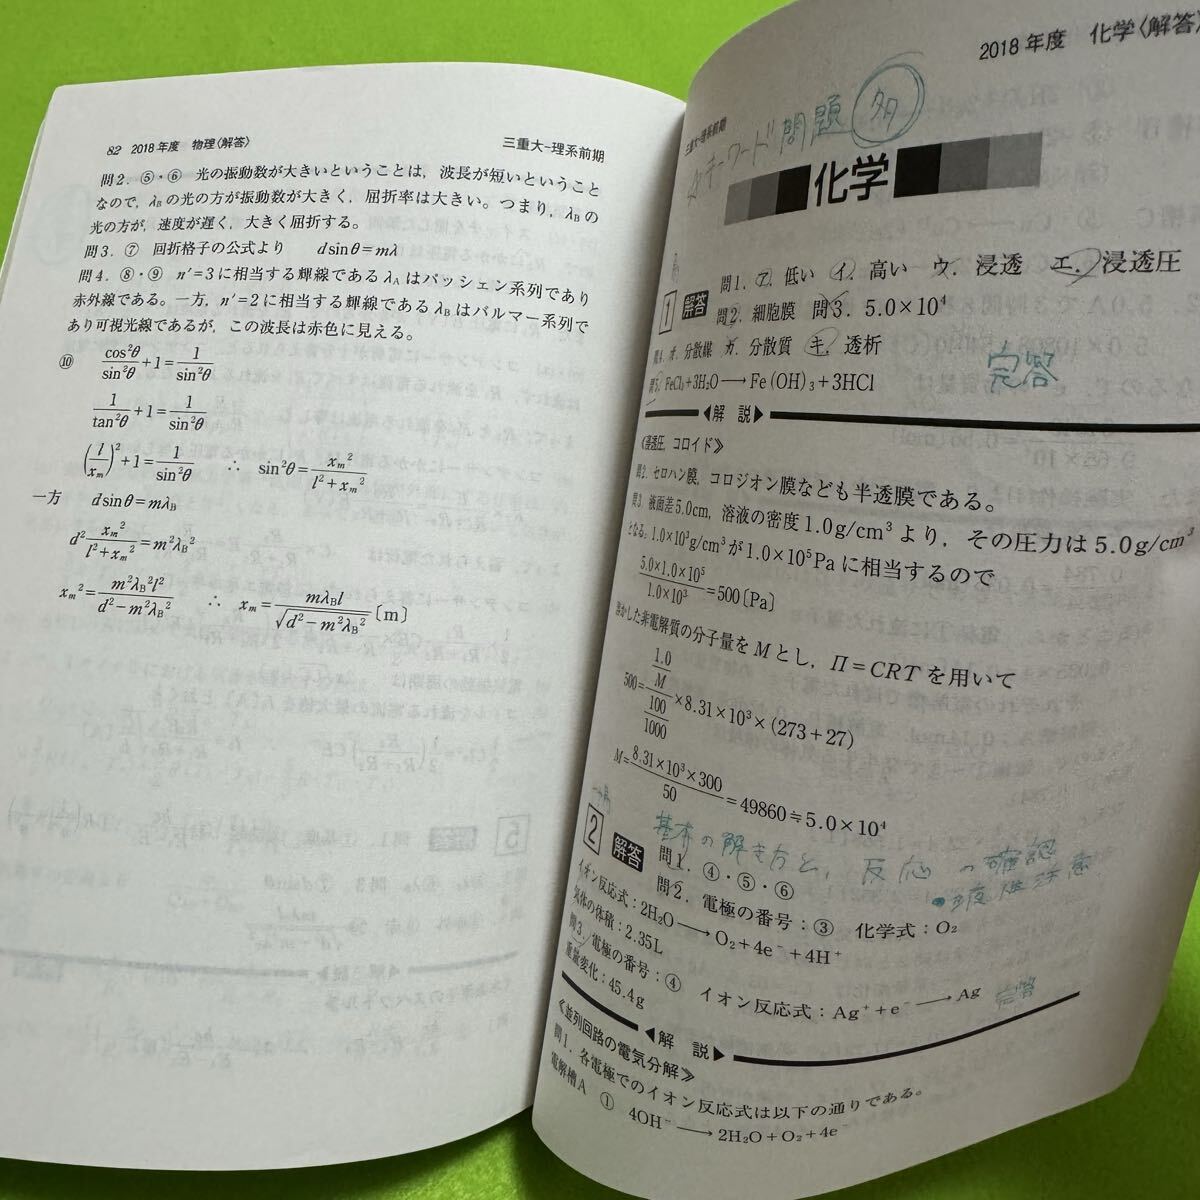 82 2018年度 物理〈解答〉 三重大-理系前期
問2．⑤・⑥ 光の振動数が大きいということは，波長が短いということ
なので，λBの光の方が振動数が大きく，屈折率は大きい。つまり，λBの
光の方が，速度が遅く，大きく屈折する。
問3．⑦ 回折格子の公式より d sinθ=mλ
問4．⑧・⑨ n′=3に相当する輝線であるλAはパッシェン系列であり
赤外線である。一方，n′=2に相当する輝線であるλBはバルマー系列で
あり可視光線であるが，この波長は赤色に見える。
⑩ cos²θ/sin²θ+1=1/sin²θ
1/tan²θ+1=1/sin²θ
(l/xm)²+1=1/sin²θ ∴ sin²θ=xm²/(l²+xm²)
一方 d sinθ=mλB
d² xm²/(l²+xm²)=m²λB²
xm²=m²λB²l²/(d²−m²λB²) ∴ xm=mλBl/√(d²−m²λB²)〔m〕
2018年度 化学〈解答〉
三重大-理系前期
キーワード問題 多
化学
1 解答 問1．ア．低い イ．高い ウ．浸透 エ．浸透圧
問2．細胞膜 問3．5.0×10⁴
問4．オ．分散媒 カ．分散質 キ．透析
問5．FeCl₃+3H₂O⟶Fe(OH)₃+3HCl
完答
◀解 説▶
≪浸透圧，コロイド≫
問2．セロハン膜，コロジオン膜なども半透膜である。
問3．液面差5.0cm，溶液の密度1.0g/cm³より，その圧力は5.0g/cm³
となる。1.0×10³g/cm³が1.0×10⁵Paに相当するので
5.0×1.0×10⁵/1.0×10³=500〔Pa〕
溶かした非電解質の分子量をMとし，Π=CRTを用いて
500=(1.0/M)/(100/1000)×8.31×10³×(273+27)
M=8.31×10³×300/50=49860≒5.0×10⁴
基本の解き方と，反応の確認
2 解答 問1．④・⑤・⑥
問2．電極の番号：③ 化学式：O₂
イオン反応式：2H₂O⟶O₂+4e⁻+4H⁺
気体の体積：2.35L
問3．電極の番号：④ イオン反応式：Ag⁺+e⁻⟶Ag
重量変化：45.4g
完答
◀解 説▶
≪並列回路の電気分解≫
問1．各電極でのイオン反応式は以下の通りである。
電解槽A ① 4OH⁻⟶2H₂O+O₂+4e⁻